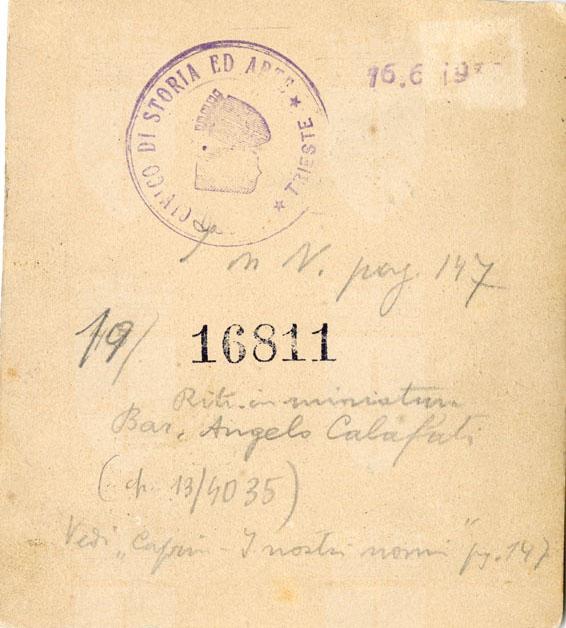 CIVICO DI STORIA ED ARTE ★ TRIESTE ★
16.6.19
N. pag. 147
19/ 16811
Ritr. in miniatura
Bar. Angelo Calafati
13/4035)
Vedi „Caprin - I nostri nonni" pg. 147